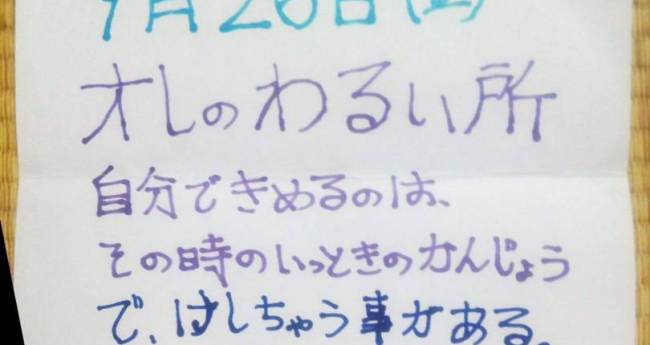 9月26日(土)
オレのわるい所
自分できめるのは、
その時のいっときのかんじょう
で、けしちゃう事がある。